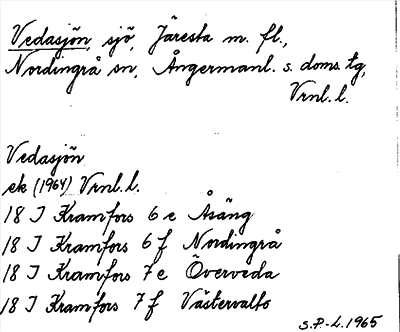 Vedasjön, sjö, Järesta m. fl.,
Nordingrå sn, Ångermanl. s. doms. tg,
Vrnl. l.
Vedasjön
ek (1964) Vrnl. l.
18 J Kramfors 6 e Åsäng
18 J Kramfors 6 f Nordingrå
18 J Kramfors 7 e Överveda
18 J Kramfors 7 f Västervalto
S.P-L. 1965